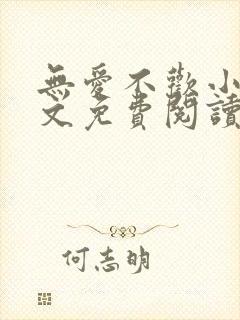 無愛不歡小
文免費閱讀
何志明